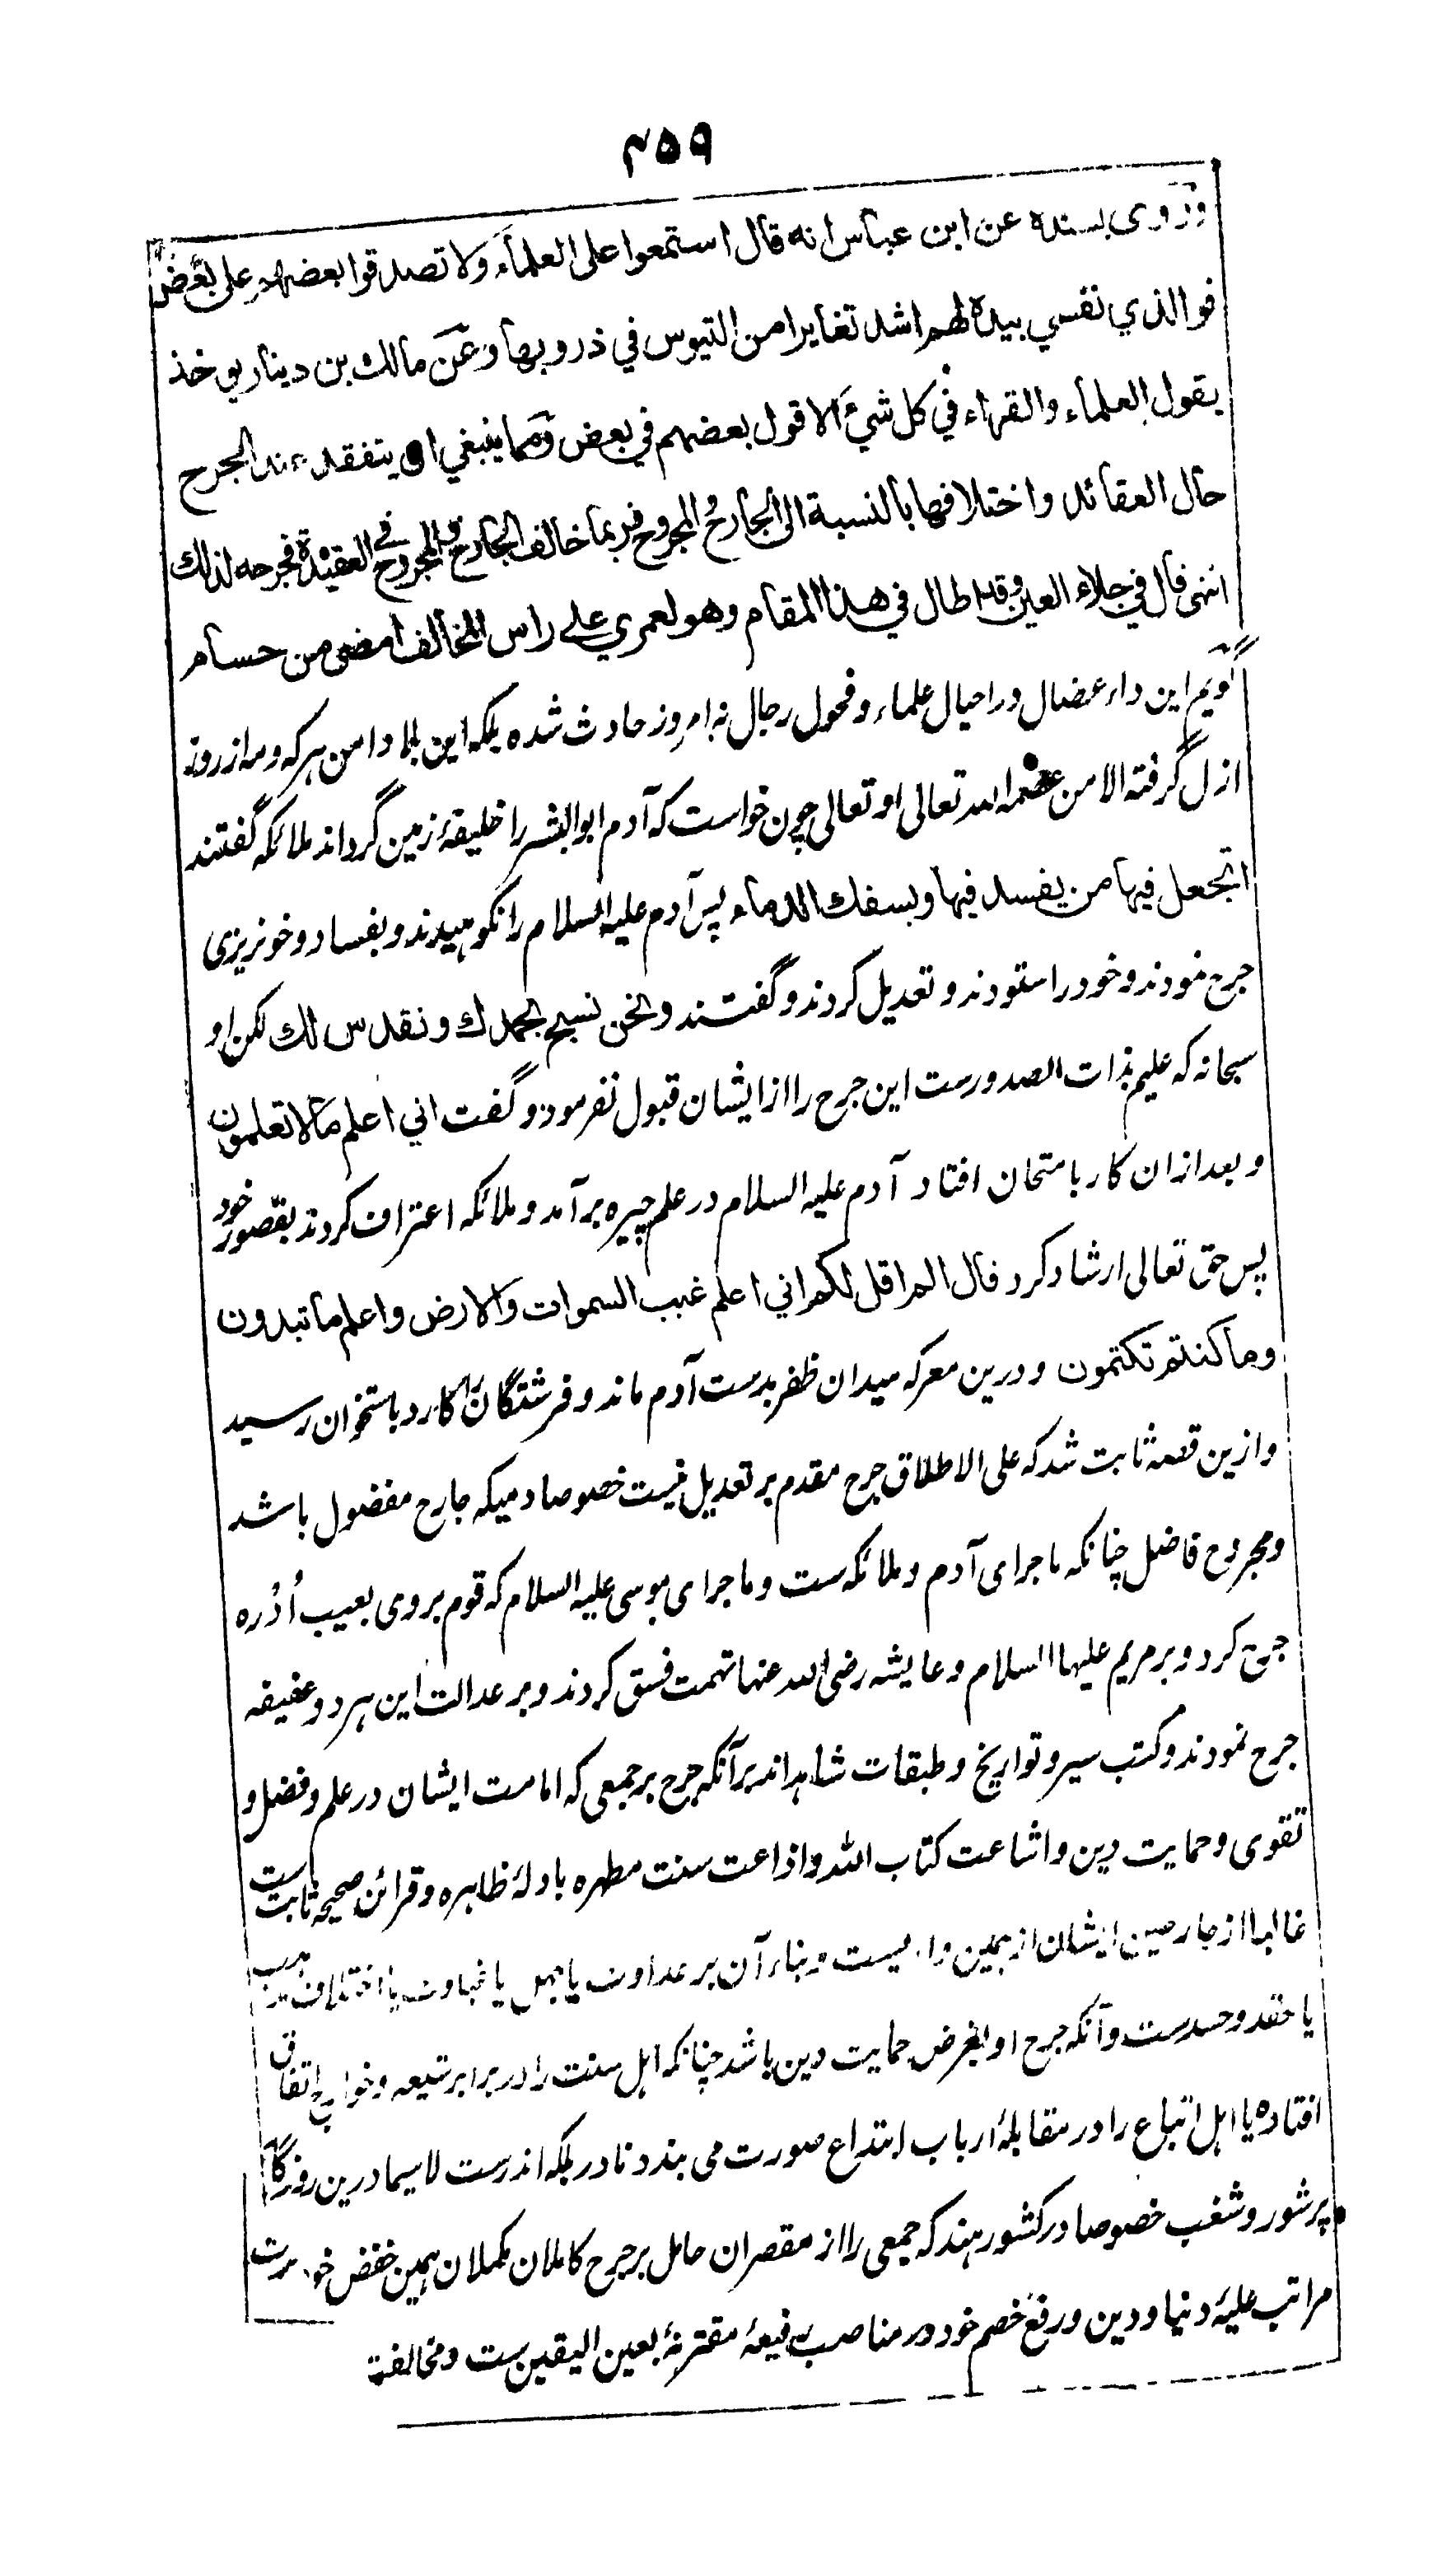 ۴۵۹
وروی بسنده عن ابن عباس انه قال استمعوا علی العلماء ولا تصدقوا بعضهم علی بعض
فوالذي نفسي بيده لهم اشد تغايرا من التيوس في ذروبها وعن مالك بن دينار يوخذ
يقول العلماء والقراء في كل شيء الا قول بعضهم في بعض ومما ينبغي ان يتفقد عند الجرح
حال العقائد واختلافها بالنسبة الى الجارح والمجروح فربما خالف الجارح المجروح في العقيدة فجرحه لذلك
انتهى قال في جلاء العين وقد اطال في هذا المقام وهو لعمري على راس المخالف امضى من حسام
گویم این داء عضال در احیال علماء و فحول رجال نه امروز حادث شده بلکه این بلا دامن هر که و مه از روز
ازل گرفته الا من عصمه الله تعالی او تعالی چون خواست که آدم ابو البشر را خلیفهٔ زمین گرداند ملائکه گفتند
اتجعل فيها من يفسد فيها ويسفك الدماء پس آدم علیه السلام را نکوهیدند و بفساد و خونریزی
جرح نمودند و خود را ستودند و تعدیل کردند و گفتند ونحن نسبح بحمدك ونقدس لك لکن او
سبحانه که علیم بذات الصدورست این جرح را از ایشان قبول نفرمود و گفت اني اعلم مالا تعلمون
و بعد ازان کار با متحان افتاد آدم علیه السلام در علم چیره برآمد و ملائکه اعتراف کردند بقصور خود
پس حق تعالی ارشاد کرد قال الم اقل لكم اني اعلم غيب السموات والارض واعلم ما تبدون
وما كنتم تكتمون و درین معرکه میدان ظفر بدست آدم ماند و فرشتگان را کارد باستخوان رسید
و ازین قصه ثابت شد که علی الاطلاق جرح مقدم بر تعدیل نیست خصوصا دمیکه جارح مفضول باشد
و مجروح فاضل چنانکه ماجرای آدم و ملائکه ست و ماجرای موسی علیه السلام که قوم بر وی بعیب اُدْره
جرح کرد و بر مریم علیها السلام و عایشه رضی الله عنها تهمت فسق کردند و بر عدالت این هر دو عفیفه
جرح نمودند و کتب سیر و تواریخ و طبقات شاهد اند بر آنکه جرح بر جمعی که امامت ایشان در علم و فضل و
تقوی و حمایت دین و اشاعت کتاب الله و اذاعت سنت مطهره بادلهٔ ظاهره و قرائن صحیحه ثابت ست
غالبا از جارحین ایشان از همین وادیست و بناء آن بر عداوت یا جهل یا غباوت یا اختلاف مذهب
یا حقد و حسدست و آنکه جرح او بغرض حمایت دین باشد چنانکه اهل سنت را در برابر شیعه و خوارج اتفاق
افتاده یا اهل اتباع را در مقابلهٔ ارباب ابتداع صورت می بندد نادر بلکه اندرست لا سیما درین روزگار
پر شور و شغب خصوصا در کشور هند که جمعی را از مقصران حامل بر جرح کاملان مکملان همین خفض خود ست
مراتب علیهٔ دنیا و دین و رفع خصم خود در مناصب رفیعهٔ مقترنهٔ بعین الیقین ست و مخالفت